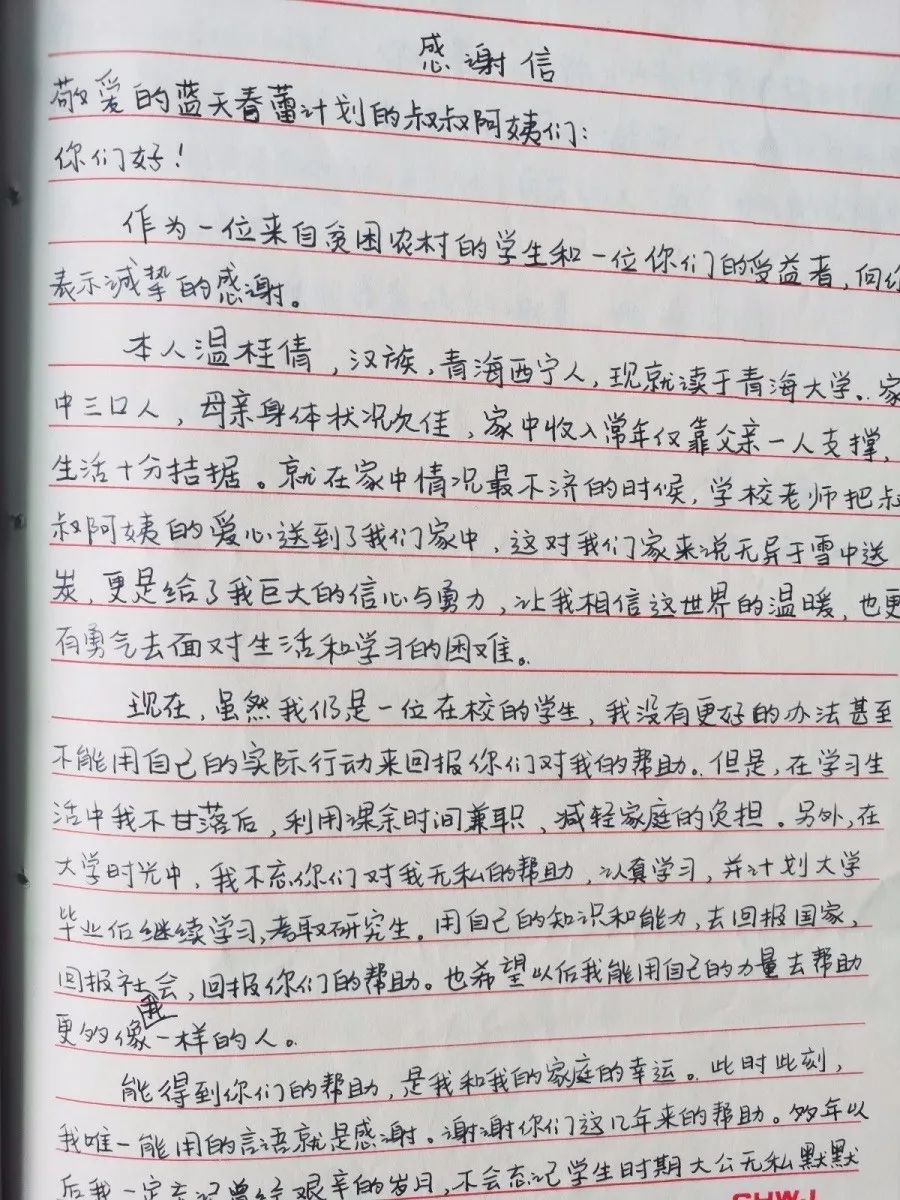 感谢信
敬爱的蓝天春蕾计划的叔叔阿姨们:
你们好!
作为一位来自贫困农村的学生和一位你们的受益者,向你
表示诚挚的感谢。
本人温桂倩,汉族,青海西宁人,现就读于青海大学。家
中三口人,母亲身体状况欠佳,家中收入常年仅靠父亲一人支撑,
生活十分拮据。就在家中情况最不济的时候,学校老师把叔
叔阿姨的爱心送到了我们家中,这对我们家来说无异于雪中送
炭,更是给了我巨大的信心与勇力,让我相信这世界的温暖,也更
有勇气去面对生活和学习的困难。
现在,虽然我仍是一位在校的学生,我没有更好的办法甚至
不能用自己的实际行动来回报你们对我的帮助。但是,在学习生
活中我不甘落后,利用课余时间兼职、减轻家庭的负担。另外,在
大学时光中,我不忘你们对我无私的帮助,认真学习,并计划大学
毕业后继续学习,考取研究生。用自己的知识和能力,去回报国家,
回报社会,回报你们的帮助。也希望以后我能用自己的力量去帮助
更多像我一样的人。
能得到你们的帮助,是我和我的家庭的幸运。此时此刻,
我唯一能用的言语就是感谢。谢谢你们这几年来的帮助。多年以
后我一定忘记曾经艰辛的岁月,不会忘记学生时期大公无私默默